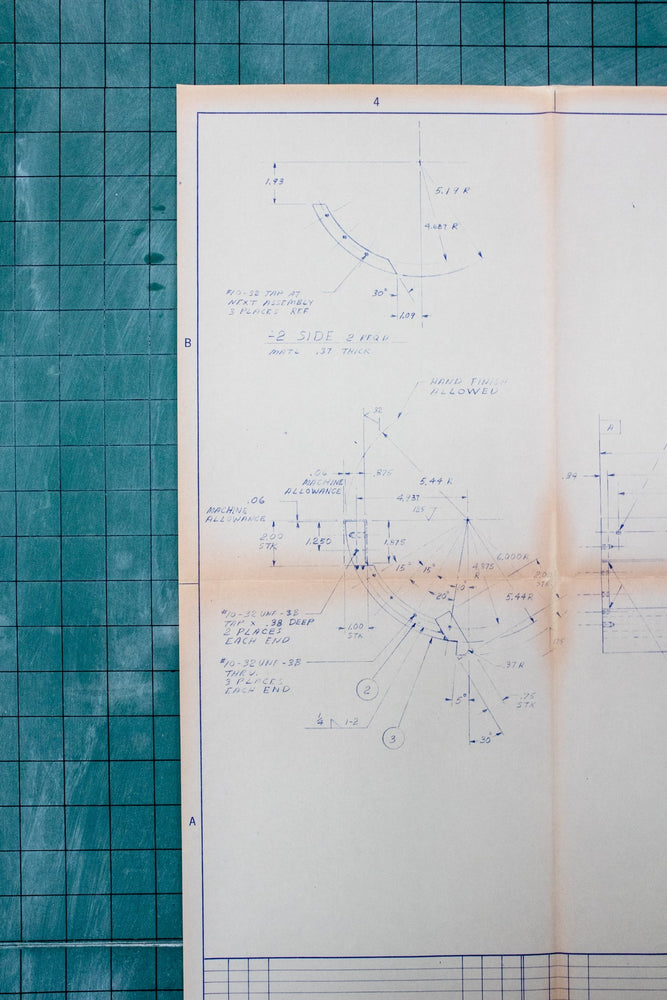 4
1.93
5.19 R
4.687 R
#10-32 TAP AT
NEXT ASSEMBLY
3 PLACES REF
30°
1.09
-2 SIDE 2 REQD
MATL .37 THICK
B
HAND FINISH
ALLOWED
32
A
.06
.875
MACHINE
ALLOWANCE
5.44 R
.84
4.937
.06
125
MACHINE
ALLOWANCE
2.00
STK
1.250
1.875
6.000R
15°
15°
4.375
R
10°
20°
5.44R
#10-32 UNF-3B
TAP X .38 DEEP
2 PLACES
EACH END
1.00
STK
#10-32 UNF-3B
THRU.
3 PLACES
EACH END
.37R
2
5°
.75
STK
1/4 1-2
3
30°
A